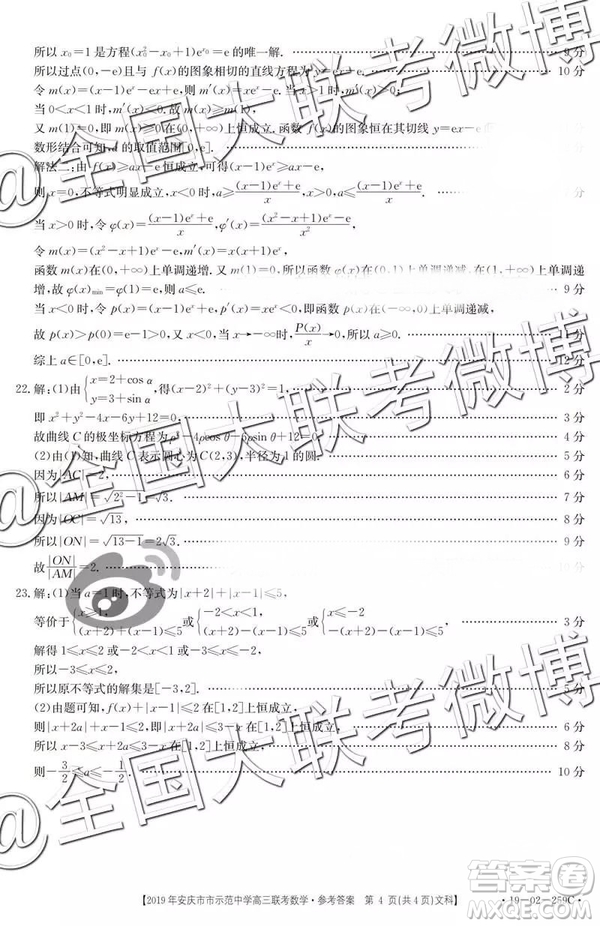 所以x₀=1是方程(x₀²-x₀+1)e^{x₀}=e的唯一解. 9分
所以过点(0,-e)且与f(x)的图象相切的直线方程为y=ex-e. 10分
令m(x)=(x-1)e^x+e,则m'(x)=xe^x,
当0<x<1时,m'(x)
又m(1)=0, 在(0,+∞)上恒成立.函数f(x)的图象恒在其切线y=ex-e
数形结合可知,a的取值范围[0,e].
解法二:由f(x)≥ax-e恒成立,可得(x-1)e^x+e≥ax
则x=0,不等式明显成立,x<0时,a≥\frac{(x-1)e^x+e}{x}
当x>0时,令φ(x)=\frac{(x-1)e^x+e}{x},φ'(x)=
令m(x)=(x²-x+1)e^x-e,m'(x)=(x²+x)e^x,
函数m(x)在(0,+∞)上单调递增.又m(1)=0,所以函数φ(x)在(0,1)上单调递减,在(1,+∞)上单调递增,
故φ(x)min=φ(1)=e,则a≤e. 9分
当x<0时,令p(x)=(x-1)e^x+e,p'(x)=xe^x<0在(-∞,0)上单调递减,
故p(x)>p(0)=e-1>0,又x<0,故\frac{P(x)}{x}<0,所以a≥0.
综上a∈[0,e]. 12分
22.解:(1)由{x=2+cos α, y=3+sin α,得(x-2)²+(y-3)²=1 2分
即x²+y²-4x-6y+12=0, 3分
故曲线C的极坐标方程为ρ²-4ρcos θ-6ρsin θ+12=0. 4分
(2)由(1)知,曲线C表示圆心为C(2,3),半径为1的圆. 5分
因为|AC|=2, 6分
所以|AM|=\sqrt{2²-1}=\sqrt{3}. 7分
因为|OC|=\sqrt{13}, 8分
所以|ON|=\sqrt{13-1}=2\sqrt{3}. 9分
故\frac{|ON|}{|AM|}=2. 10分
23.解:(1)当a=1时,不等式为|x+2|+|x-1|≤5,
等价于{x≥1, (x+2)+(x-1)≤5或{-2<x<1, (x+2)-(x-1)≤5或{x≤-2, -(x+2)-(x-1)≤5 3分
解得1≤x≤2或-2<x<1或-3≤x≤-2,
所以-3≤x≤2,
所以原不等式的解集是[-3,2]. 5分
(2)由题可知, 在[1,2]上恒成立,
则|x+2a|+x-1≤5在[1,2]上恒成立, 6分
则|x+2a|≤6-x在[1,2]上恒成立, 7分
所以x-6≤x+2a≤6-x在[1,2]上恒成立, 8分
所以-3≤a≤3-x在[1,2]上恒成立,
10分
【2019年安庆市市示范中学高三联考数学·参考答案 第4页(共4页)文科】 ·19-02-259C·
@全国大联考微博
@全国大联考微博
@全国大联考微博
答案圈
MXQE.COM